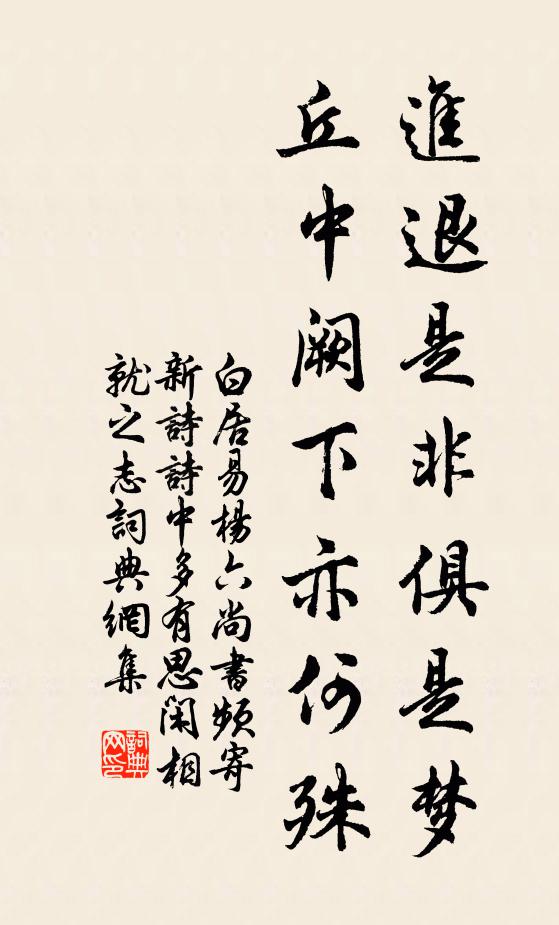 進退是非俱是梦
丘中阙下亦何殊
白居易楊六尚書頻寄
新詩詩中多有思闲相
就之志詞典網集
詞典网印